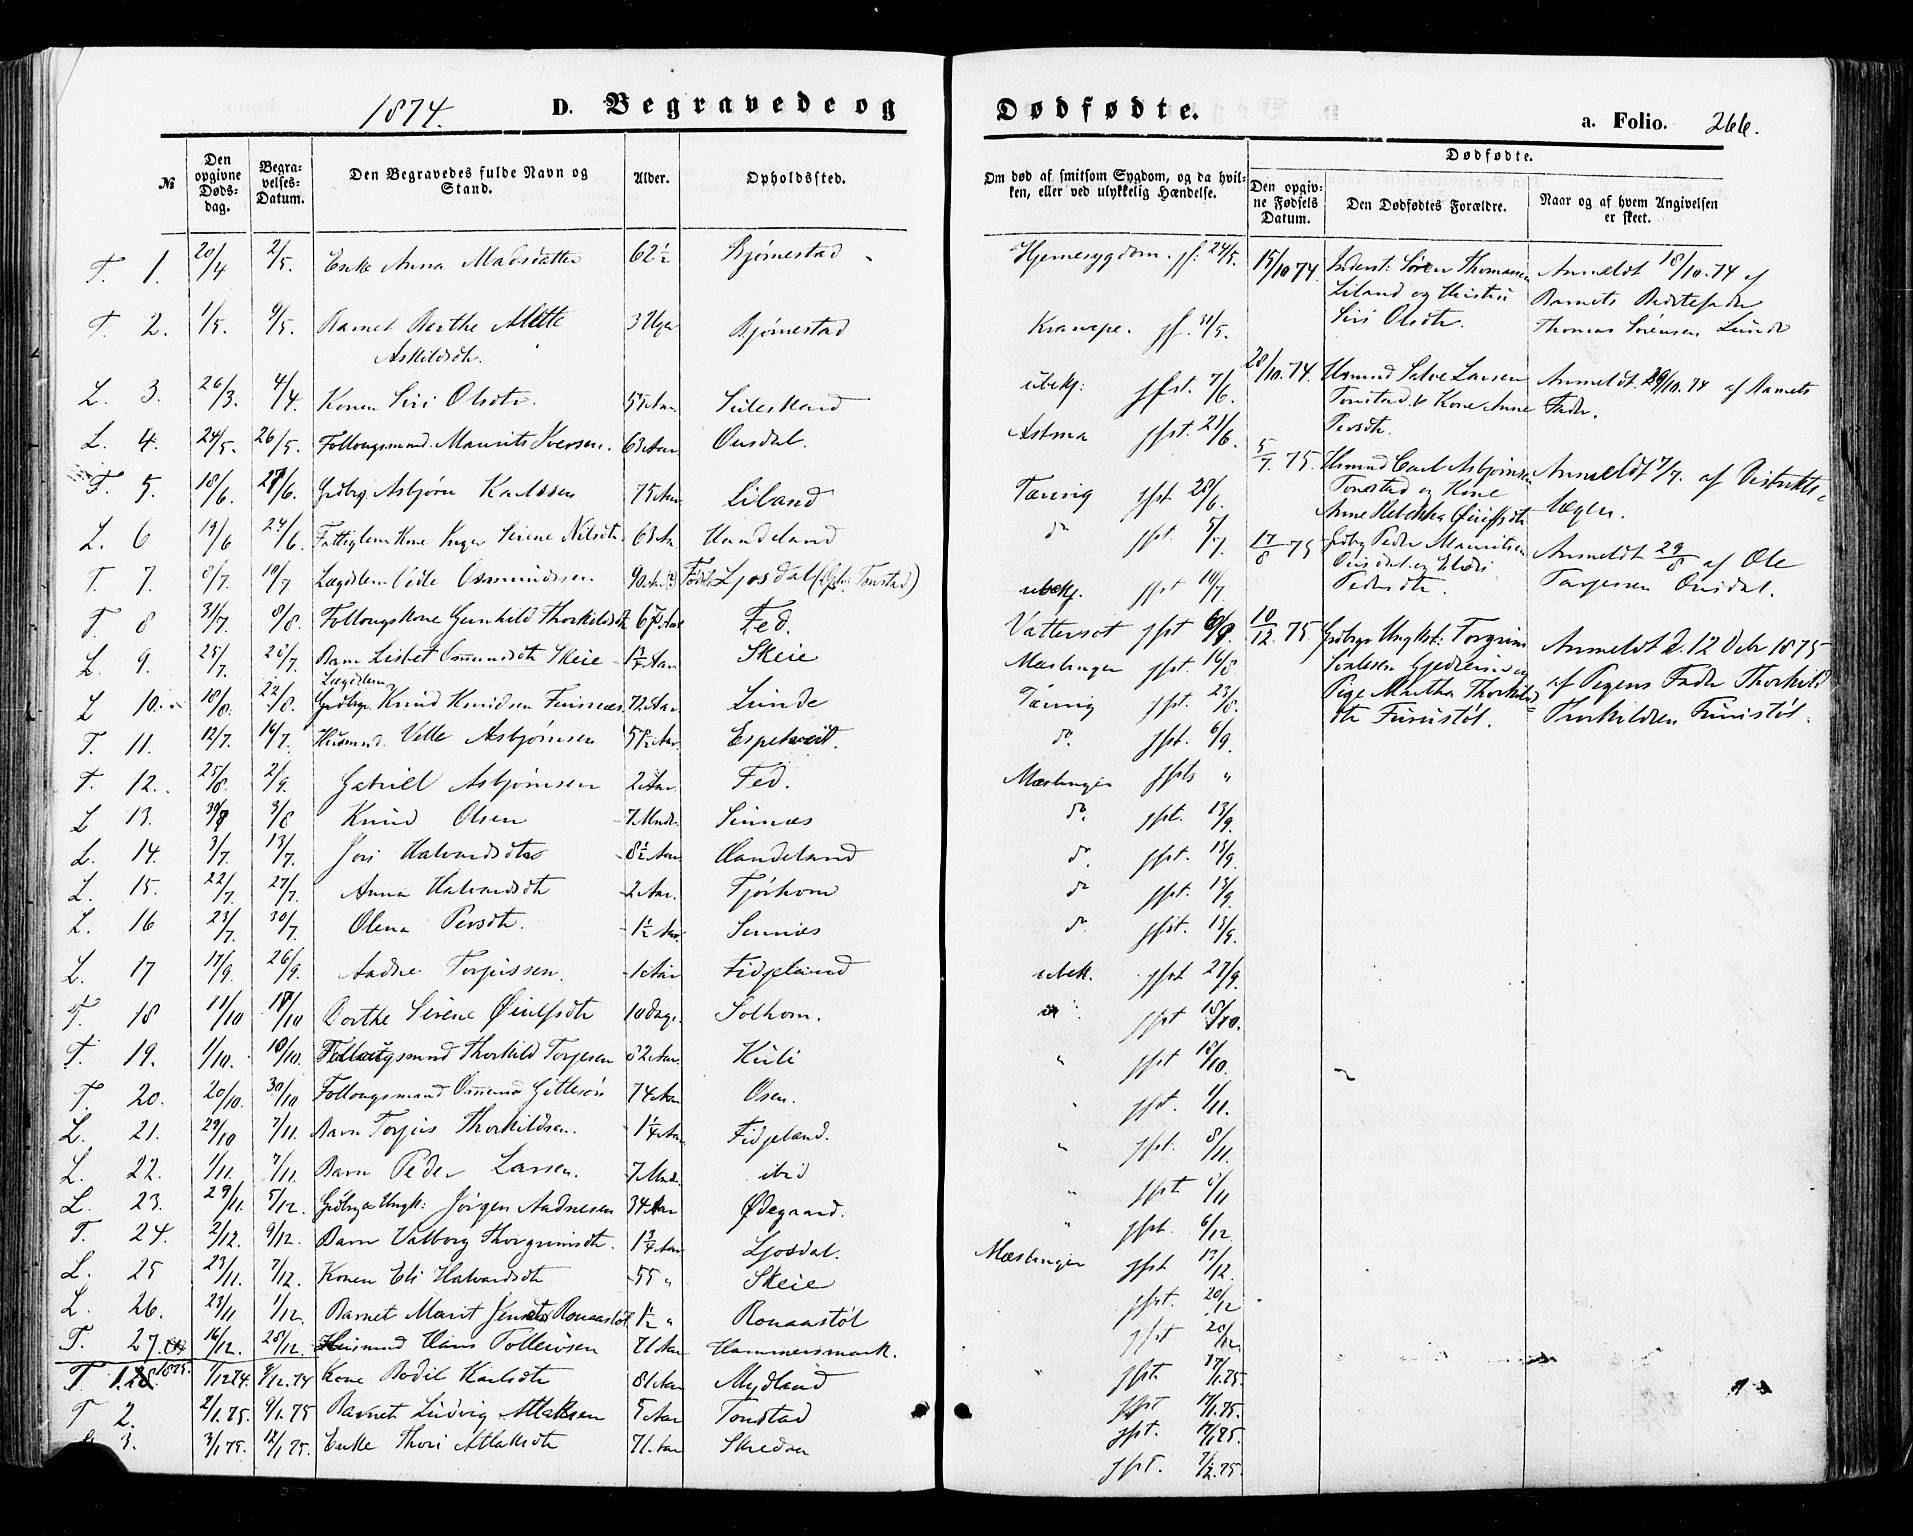 1874. D. Begravede og
Dødfødte. a. Folio. 266.
№ Den opgivne Dødsdag. Begravelses-Datum. Den Begravedes fulde Navn og Stand. Alder. Opholdssted.
T. 1. 20/4 2/5. Enke Anna Madsdatter 62½ Bjørnestad
T. 2. 1/5. 9/5. Barnet Berthe Mette 3 Uger Bjørnestad
Askildsdtr.
L. 3. 26/3. 4/4. Konen Siri Olsdtr. 55 Aar
L. 4. 24/5. 26/5. Follougsmand. Maurits Iversen. 63 Aar Ousdal.
T. 5. 18/6. 27/6. Grdbrg Asbjørn Karlsen 75 Aar Liland
L. 6 19/6 24/6. Fattiglem Kone Inger Serene Nilsdtr. 63 Aar Haudeland
T. 7. 8/7. 10/7 Lægdslem Osmundsen 90 Aar Ljosdal (Tonstad)
T. 8 31/7. 8/8. Follougskone Gunhild Thorkildsdtr 67 Aar Fed.
L. 9. 25/7 28/7. Barn Lisbet Osmundsdtr Skeie 1¼ Aar Skeie
Lægdslem
L 10. 18/8. 22/8. Grdbrgr. Knud Knudsen 72 Aar Lunde
T. 11. 12/7. 16/7. Husmnd. Velle Asbjørnsen 58½ Aar Espetveit.
T. 12. 25/8. 2/9. Gabriel Asbjørnsen 2 Aar. Fed.
L 13. 3/8 Knud Olsen 7 Mndr. Sinnæs
L. 14. 3/7. 13/7. Jori Halvardsdtr 8½ Aar. Haudeland
L. 15. 22/7 27/7. Anna Halvardsdtr 2 Aar. Tjørhom
L. 16 23/7. 30/7. Olena Persdtr. 1½ Aar. Sinnæs
L. 17 17/9. 26/9. Aadne Torjussen. 1 Aar Fidjeland
T. 18 11/10 17/10 Dorthe Serene Øiulfsdtr 10 Dage. Solhom.
T. 19. 1/10. 10/10. Follougsmnd Thorkild Torjesen 82 Aar. Kvli
T. 20. 20/10. 30/10 Follougsmand Osmund Gitlesøn 74 Aar Osen.
L. 21. 29/10 7/11. Barn Torjus Thorkildsen. 1¼ Aar Fidjeland.
L. 22. 1/11. 7/11. Barn Peder Larsen. 7 Mndr. ibid
L. 23. 29/11. 5/12. Grdbrgr Ungk: Jørgen Aadnesen 34 Aar Ødegaard.
T. 24. 2/12. 9/12. Barn Valborg Thorgrimsdtr. 1¾ Aar Ljosdal.
L. 25 23/11. 7/12. Konen Eli Halvardsdtr 55 " Skeie
L. 26. 23/11 1/12. Barnet Marit Ronaastøl 1½ " Ronaastøl
T. 27. 16/12. 28/12. Husmnd Hans Tollevsen 71 Aar Hammersmark.
T 1. 1875. 1/12 74. 9/12. 74 Kone Bodil Karlsdtr 81 Aar Mydland
T 2. 2/1. 75. 9/1. 75 Barnet Ludvig Atlaksen 5 Aar Tonstad
3. 3/1 75. 12/1 75. Enke Thori Atlaksdtr 71 Aar Skredaa
Om død af smitsom Sygdom, og da hvilken, eller ved ulykkelig Hændelse.
Dødfødte.
Den opgivne Fødsels Datum. Den Dødfødtes Forældre. Naar og af hvem Angivelsen er skeet.
Hjernesygdom. jf: 24/5.
Krampe. jf. 31/5.
ubekj: jfst. 7/6.
Astma jfst. 21/6.
Tæring jfst. 28/6.
do jfst. 5/7
ubekj. jfst 19/7
Vattersot jfst 6/9.
Mæslinger jfst. 16/8.
Tæring jfst. 23/8.
do. jfst. 6/9.
Mæslinger jfsts "
do. jfst. 13/9.
do. jfst. 13/9.
do jfst. 13/9.
do. jfst. 13/9.
ubek. jfst 27/9.
" jfst 18/10.
" jfst 18/10.
" jfst. 1/11.
" jfst. 8/11.
" jfst.
" jfst. 6/12.
Mæslinger jfst 13/12.
jfst. 20/12
jfst 20/12.
" jfst. 17/1.75.
jfst 17/1.75.
jfst. 17/1.75.
jfst. 7/2.75.
15/10 74. Inderst: Søren Thomassen
Liland og Hustru
Siri Olsdtr.
Anmeldt 18/10. 74 af
Barnets Bedstefader
Thomas Sørensen Lunde
28/10. 74. Husmnd Salve Larsen
Tonstad & Kone Anne
Persdtr.
Anmeldt 29/10. 74 af Barnets
Fader.
5/7. 75. Husmnd Carl Asbjørnsen
Tonstad og Kone
Anne Rebekka Øiulfsdtr
Anmeldt 7/7. af Distrikts-
lægen.
17/8 75 Grdbrg Peder Mauritsen
Ousdal og
Pedersdtr.
Anmeldt 29/8 af Ole
Torjesen Ousdal.
10/12. 75. Grdbrgr Ungkt: Torgrim
Pige Martha Thorkilds-
dtr Fuunstøl.
Anmeldt d. 12 Debr 1875
af Pigens Fader Thorkild
Thorkildsen Fuunstøl.